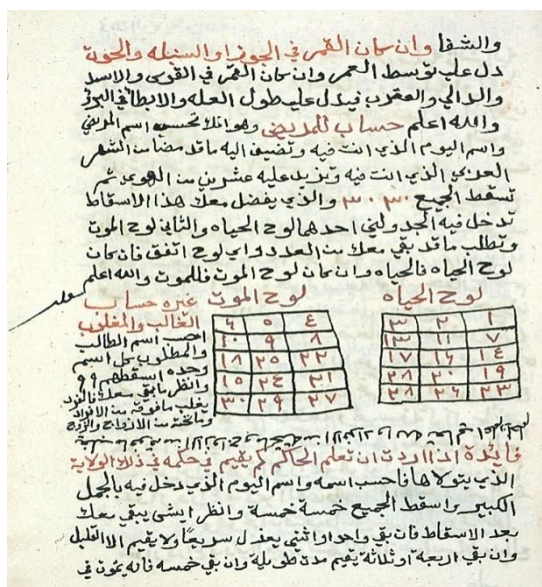 والشفا وان كان القمر في الجوزا والسنبله والحوت
دل علي توسط العمر وان كان القمر في القوس والاسد
والدالي والعقرب فيدل علي طول العله والابطا في البرؤ
والله اعلم حساب للمريض وهو انك تحسب اسم المريض
واسم اليوم الذي انت فيه وتضيف اليه ما قد مضا من الشهر
العربي الذي انت فيه وتزيد عليه عشرين من الهوي ثم
تسقط الجميع ٣٠ ٣٠ والذي يفضل معك هذا الاسقاط
تدخل فيه الجدولين احدهما لوح الحياه والثاني لوح الموت
وتطلب ما قد بقي معك من العدد واي لوح اتفق فان كان
لوح الحياه فالحياه وان كان لوح الموت فللموت والله اعلم
لوح الحياه
١ ٢ ٣
٧ ١١ ١٣
١٤ ١٦ ١٧
١٩ ٢٠ ٢٨
٢٣ ٢٦ ٢٨
لوح الموت
٤ ٥ ٦
٨ ٩ ١٠
٢٢ ٢٥ ١٨
٢١ ٢٤ ١٥
٢٧ ٢٩ ٣٠
غيره حساب
الغالب والمغلوب
احسب اسم الطالب
والمطلوب كل اسم
وحده اسقطهم ٩ ٩
وانظر ما بقي معك فالفرد
يغلب ما فوقه من الافراد
وما تحته من الازواج والزوج
فايدة اذا اردت ان تعلم الحاكم كم يقيم في حكمه في ذلك الولاية
الذي يتولاها فاحسب اسمه واسم اليوم الذي دخل فيه بالجمل
الكبير واسقط الجميع خمسة خمسة وانظر ايشي يبقي معك
بعد الاسقاط فان بقي واحد او اثنين يعزل سريعا ولا يقيم الا القليل
وان بقي اربعة او ثلاثة يقيم مدة طويله وان بقي خمسه فانه يموت في